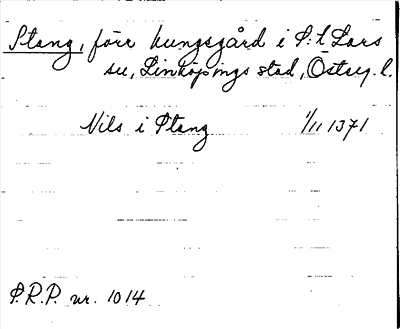 Stang, förr kungsgård i S:t Lars
sn, Linköpings stad, Östeg. l.
Nils i Stang 1/11 1371
P.R.P. nr. 1014